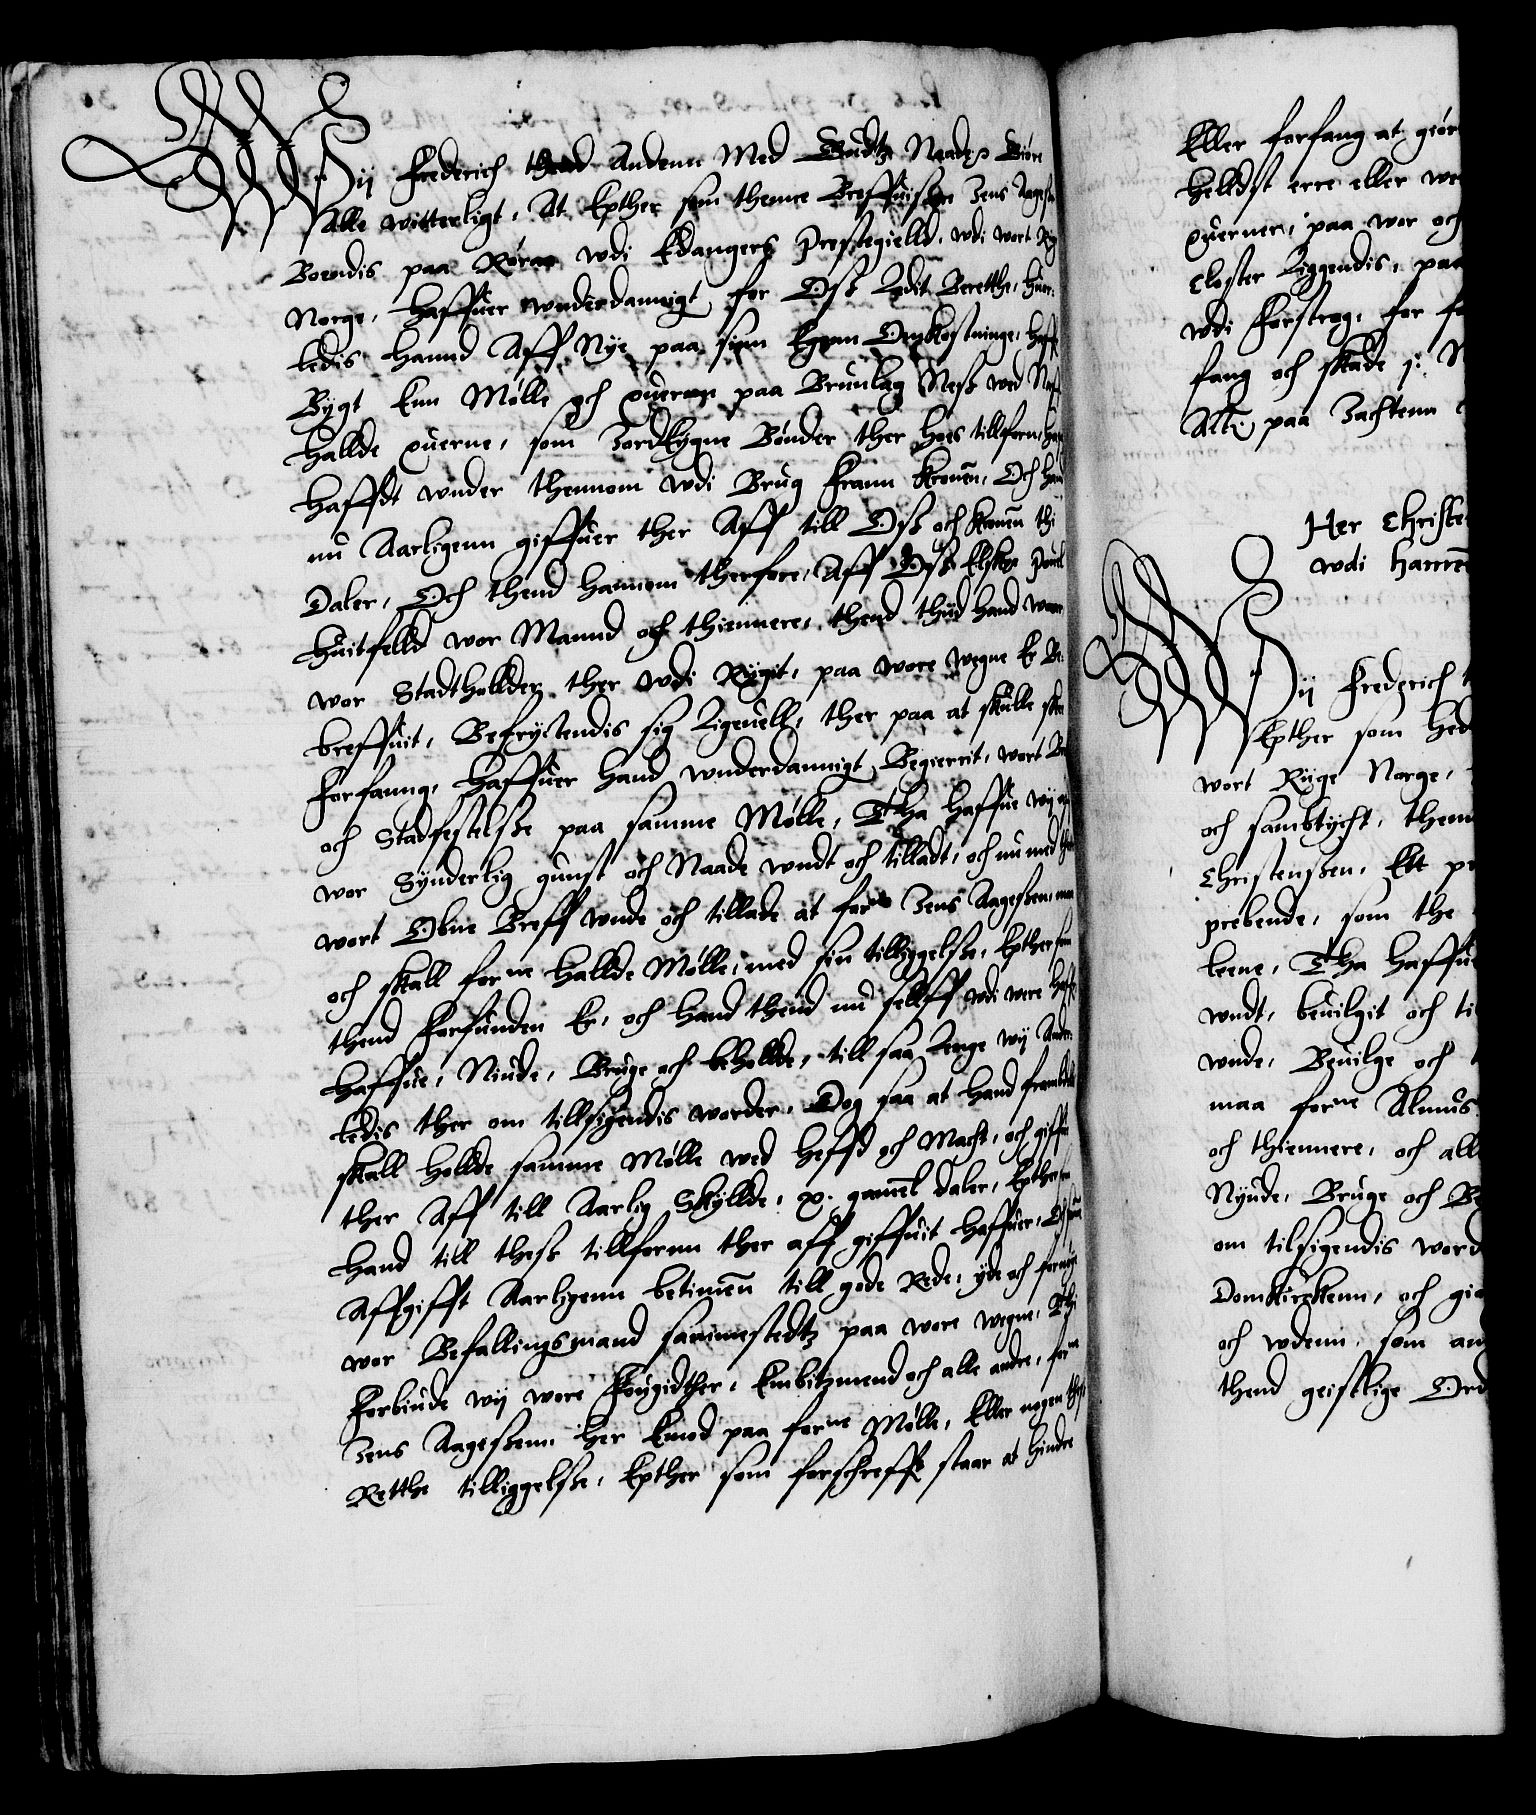 Wij Frederich thend Andenn Med Gudtz Naade Giøre
Alle witterligt, At Epther som thenne Breffuisere Jens Aagess
Boendis paa Røraa wdi Edangers Prestegielld, wdi wort Rig
Norge, Haffuer wnderdannigt for Oss Ladit Beretthe, huor:
ledis hannd Aff Nye paa sinn Egenn Omkostninge, haff
Bygt Enn Mølle och querne paa Brunlag Ness wed
hallde querne, som Jordeygne Bønder ther hoes tillforn, haff
Haffdt wnder thennom wdi Brug Frann Kronen, Och hand
nu Aarligenn giffuer ther Aff till Oss och Kronen thi
Daler, Och thend hannom therfore, Aff Oss Elske Pouel
Huitfelld wor Mannd och thiennere, thend thiid hand waar
wor Stadthollder ther wdi Riigit, paa wore wegne Er Be:
breffuit, Befryctendis sig Ligeuell, ther paa at skulle skee
Forfanng, Haffuer hand wnderdannigt Begierrit, wort Bre
och Stadfestelsse paa samme Mølle, Tha haffue wij aff
wor Synderlig gunst och Naade wndt och tilladt, och nu med the
wort Obne Breff wnde och tillade at forne Jens Aagessen, maa
och skall forne Hallde Mølle, med sin tilliggelsse, Epther som
thend Forfunden Er, och hand thend nu sellff wdi were haff
Haffue, Niude, Bruge och beholde, till saa Lenge wij Ander:
ledis ther om tillsigendis worder, Dog saa at hand frembdelis
skall hollde samme Mølle wed heffd och Macht, och giffue
ther Aff till Aarlig Skyllde, x. gamel daler, Epther som
hand till thess tillfornn ther aff giffuit haffuer, Och samme
Affgifft Aarligenn betimen till gode Rede, yde och fornøye
wor Befallingsmand sammestedtz paa wore wegne, Thi
Forbiude wij wore Fougidther, Embitzmend och alle andre, forne
Jens Aagessenn her Emod paa forne Mølle, Eller nogen thes
Retthe tilliggelsse, Epther som forschreffit staar at hindre
Eller forfang at giøre
helldst erre eller we
querner, paa wor och
Closter Liggendis, paa
wdi Forstrog, for fo
fang och skade
Actj. paa Jachtenn
Her Christe
wdi hamme
Wij Frederich t
Epther som hed
wort Riige Norge,
och sambtycht, them
Christenssen, Ett pr
prebende, som the
leene, Tha haffue
wndt, beuilgit och ti
wnde, Beuilge och
maa forne Almus
och thiennere, och all
Nyude, Bruge och Be
om tilsigendis word
Domkirckenn, och gi
och wdenn, som an
thend geistlige Ord